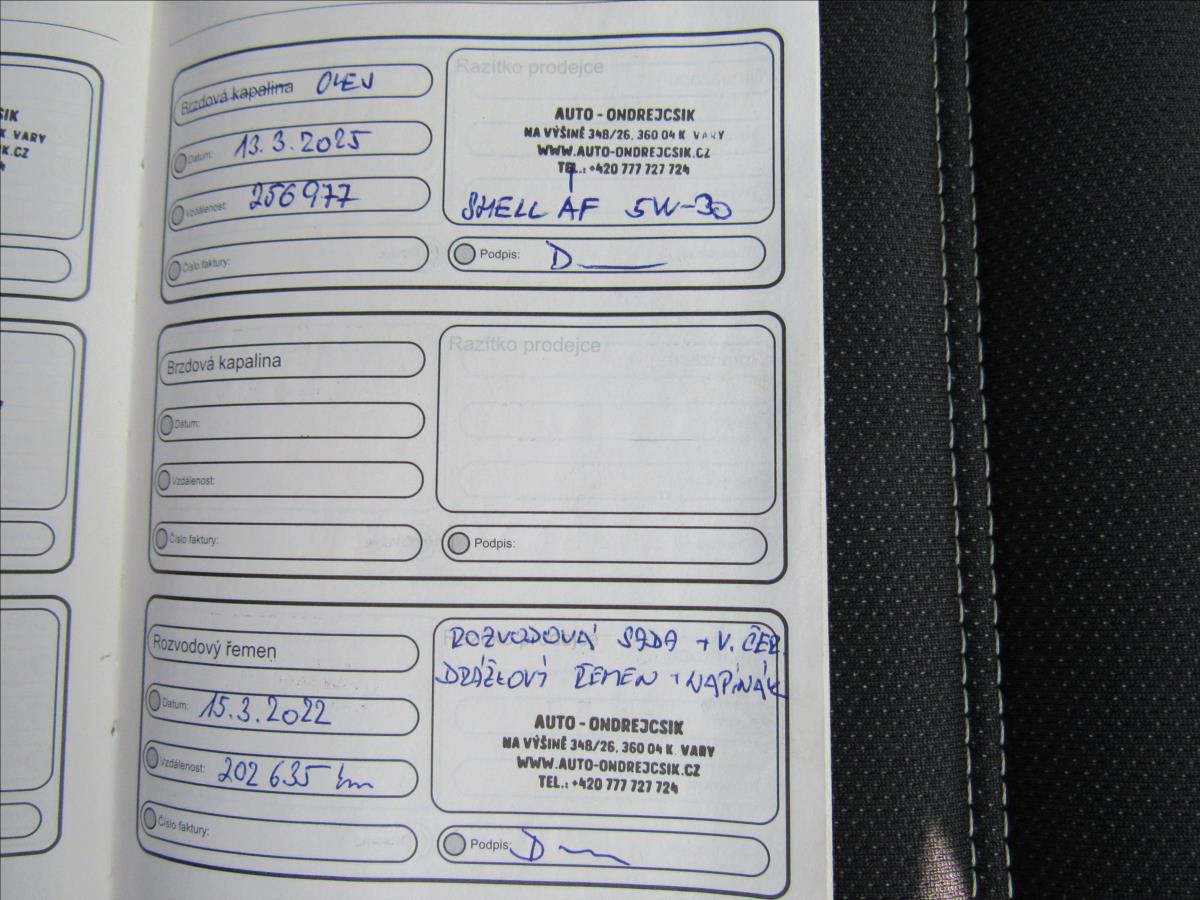 SIK
K. VARY
K.CZ
Brzdová kapalina OLEJ
Datum: 13.3.2025
Vzdálenost: 256977
Číslo faktury:
Razítko prodejce
AUTO - ONDREJCSIK
NA VÝŠINĚ 348/26, 360 04 K. VARY
WWW.AUTO-ONDREJCSIK.CZ
TEL.: +420 777 727 724
SHELL AF 5W-30
Podpis:
Brzdová kapalina
Datum:
Vzdálenost:
Číslo faktury:
Razítko prodejce
Podpis:
Rozvodový řemen
Datum: 15.3.2022
Vzdálenost: 202 635 km
Číslo faktury:
ROZVODOVÁ SADA + V. ČER.
DRÁŽKOVÝ ŘEMEN + NAPÍNÁK
AUTO - ONDREJCSIK
NA VÝŠINĚ 348/26, 360 04 K. VARY
WWW.AUTO-ONDREJCSIK.CZ
TEL.: +420 777 727 724
Podpis: